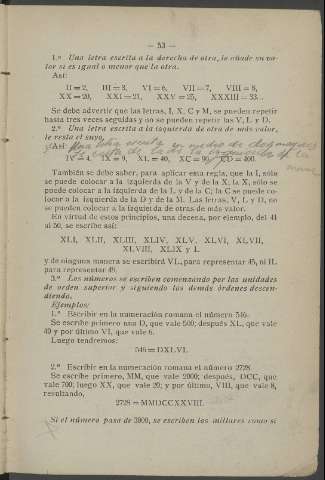 — 53 —
1.º Una letra escrita a la derecha de otra, le añade su va-
lor si es igual o menor que la otra.
Así:
II = 2, III = 3, VI = 6, VII = 7, VIII = 8,
XX = 20, XXI = 21, XXV = 25, XXXIII = 33...
Se debe advertir que las letras, I, X, C y M, se pueden repetir
hasta tres veces seguidas y no se pueden repetir las V, L y D.
2.º Una letra escrita a la izquierda de otra de más valor,
le resta el suyo.
Así: Una letra escrita en medio de dos mayores
IV = 4 IX = 9, XL = 40, XC = 90, CD = 400.
También se debe saber, para aplicar esta regla, que la I, sólo
se puede colocar a la izquierda de la V y de la X, la X, sólo se
puede colocar a la izquierda de la L y de la C; la C se puede co-
locar a la izquierda de la D y de la M. Las letras, V, L y D, no
se pueden colocar a la izquierda de otras de más valor.
En virtud de estos principios, una decena, por ejemplo, del 41
al 50, se escribe así:
XLI, XLII, XLIII, XLIV, XLV, XLVI, XLVII,
XLVIII, XLIX y L
y de ninguna manera se escribirá VL, para representar 45, ni IL
para representar 49.
3.º Los números se escriben comenzando por las unidades
de orden superior y siguiendo las demás órdenes descen-
diendo.
Ejemplos:
1.º Escribir en la numeración romana el número 546.
Se escribe primero una D, que vale 500; después XL, que vale
40 y por último VI, que vale 6.
Luego tendremos:
546 = DXLVI.
2.º Escribir en la numeración romana el número 2728
Se escribe primero, MM, que vale 2000; después, DCC, que
vale 700; luego XX, que vale 20; y por último, VIII, que vale 8,
resultando,
2728 = MMDCCXXVIII.
Si el número pasa de 3999, se escriben los millares como si